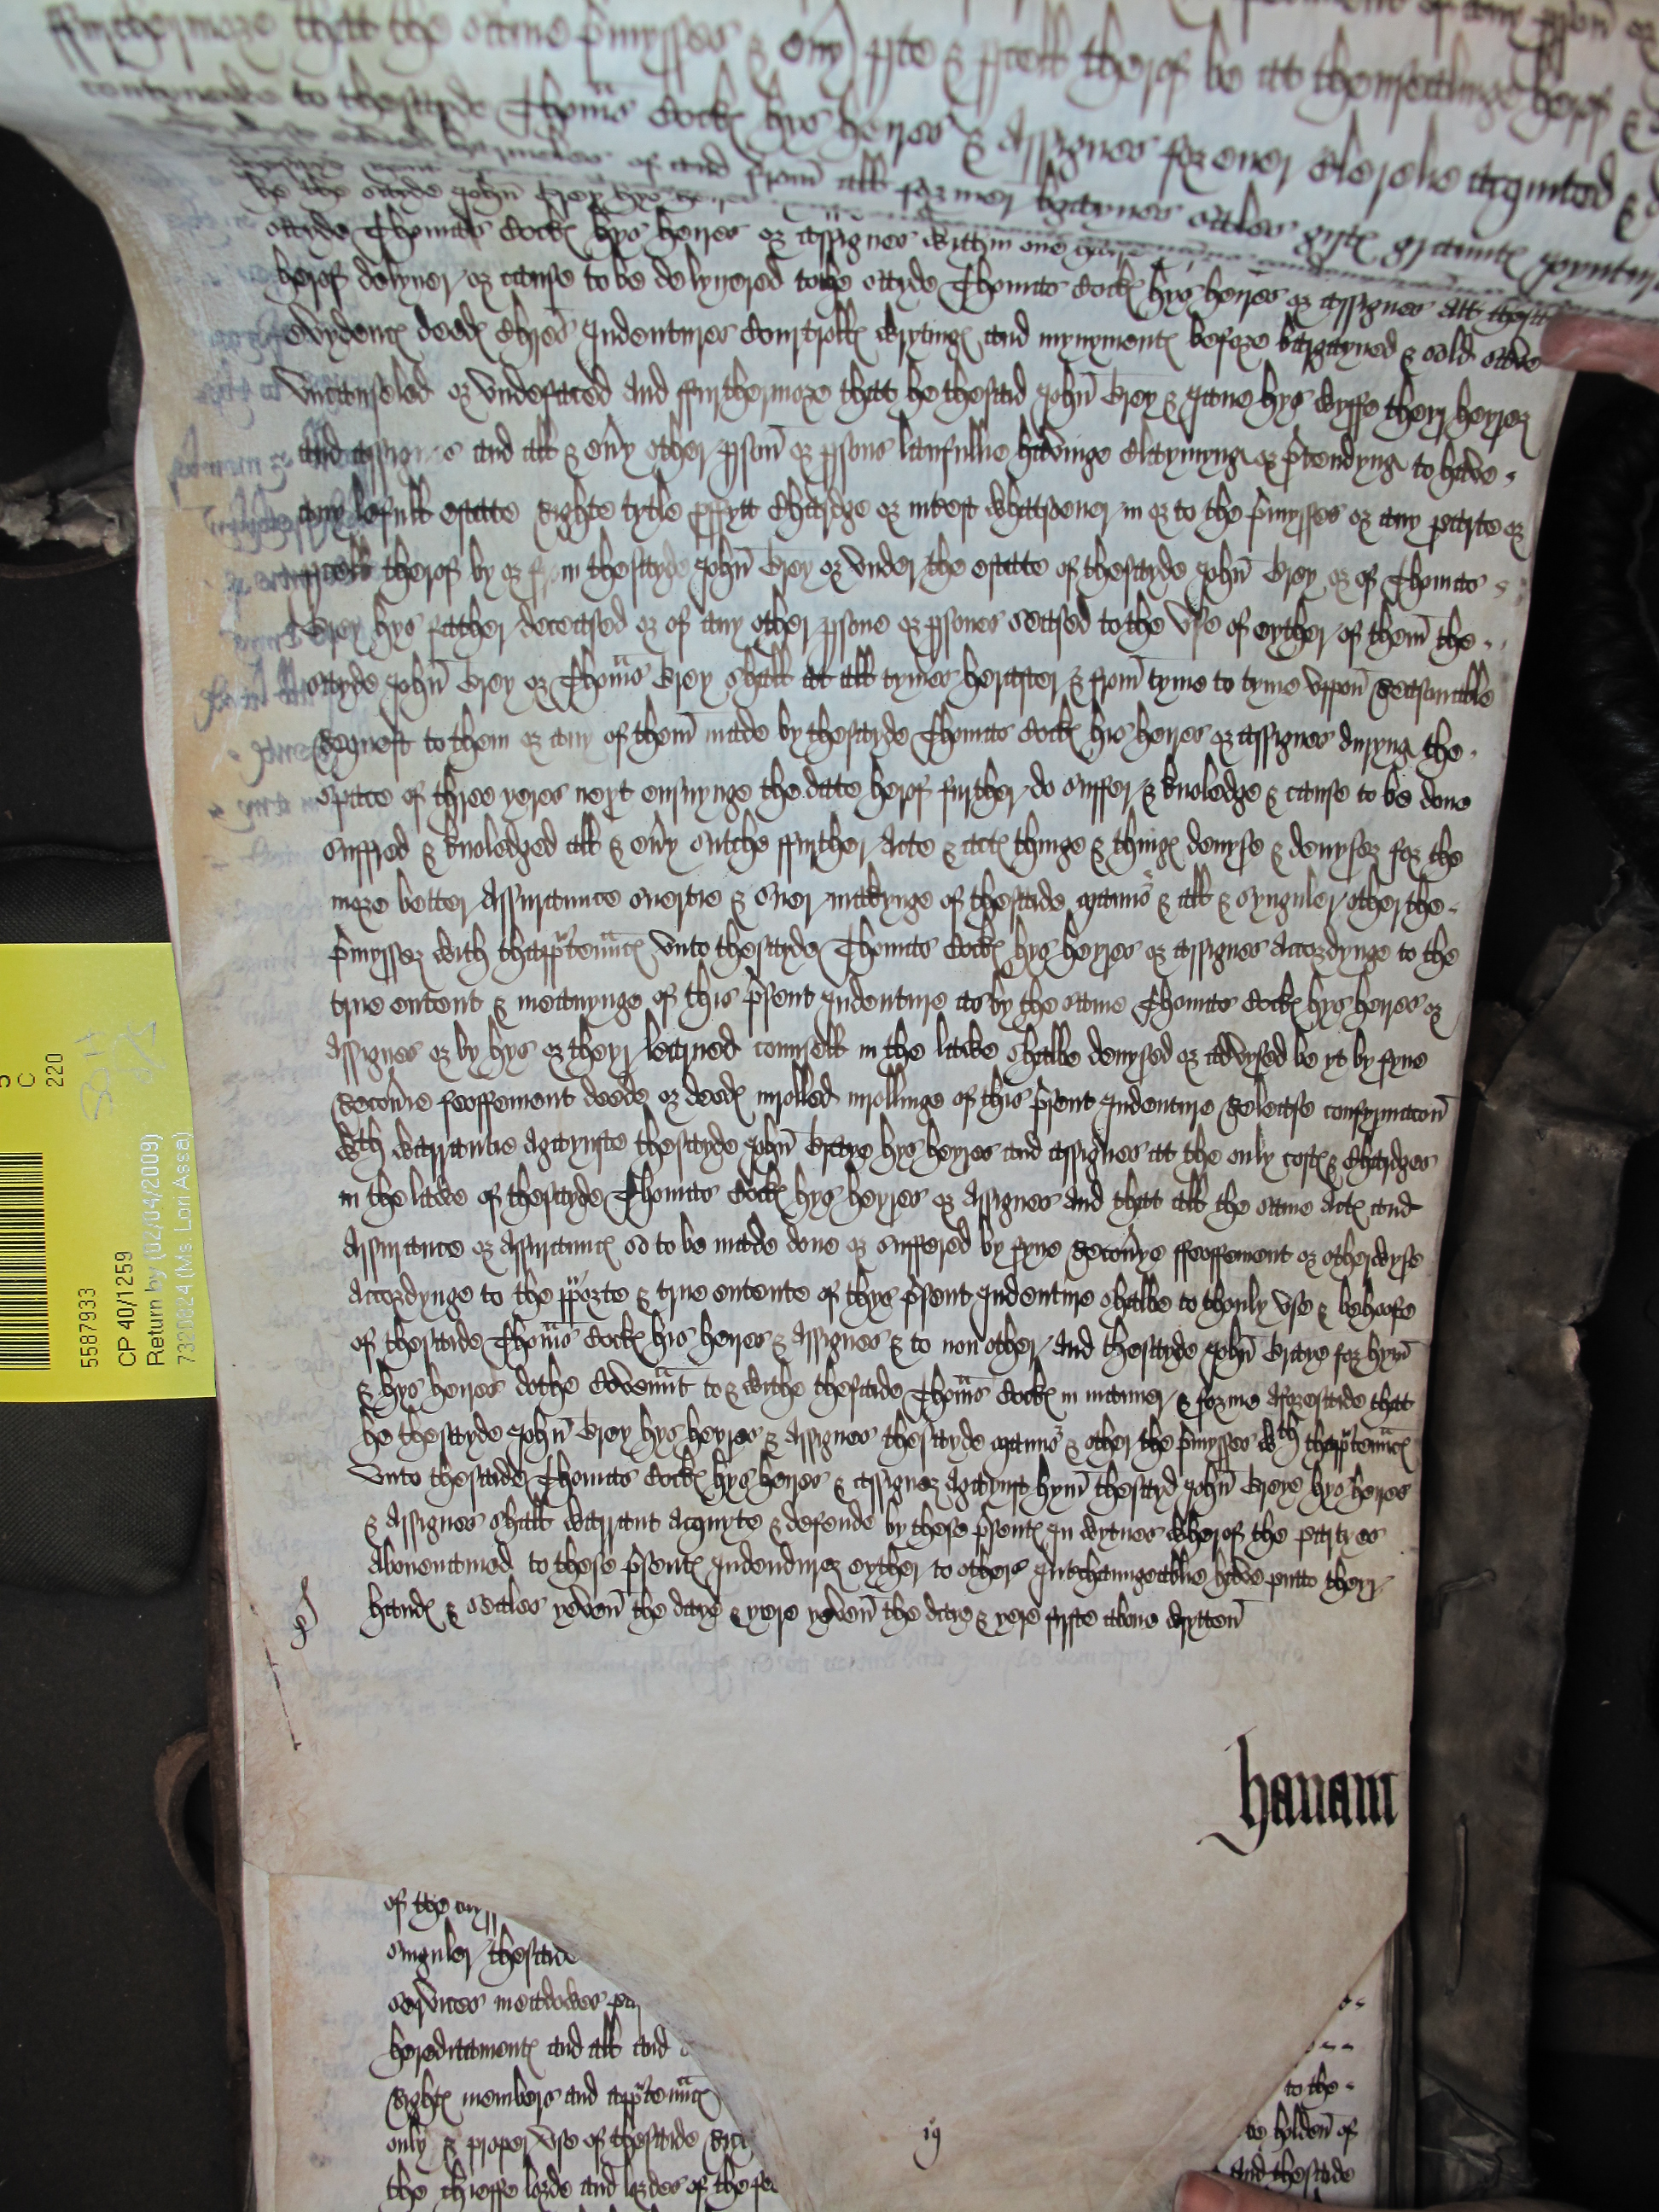 ffurthermore thatt the same p̄mysses & eṽy p̱te & p̱cell therof be att thensealinge herof &
contynewe to thesayde Thom̃s Cock hys heires & Assignes for ever clerelie acquited &
of and from̄ all former bgaynes sales gyft grauntꝭ Joynture
be the sayde John̄ Grey hys heires
sayde Thomas Cock hys heires or assignes within one
herof delyver or cause to be delyvered to the sayde Thomas Cock hys heires or assignes All
evydencꝭ deedꝭ chres Indentures Courtrollꝭ wrytingꝭ and mynymentꝭ before bargayned & sold safe
uncanseled or undefaced And ffurthermore thatt he thesaid John̄ Grey & Jane hys wyffe theyr heyres
and assignes and all & eṽy other p̱son̄ or p̱sons laufullie havinge claymyng or p̄tendyng to have
any lefull estate Righte tytle p̱ffytt chardge or intrest whatsoever in or to the p̄mysses or any parte or
p̱cell therof by or from thesayde John̄ Grey or under the estate of thesayde John̄ Grey or of Thomas
Grey hys father deceased or of any other p̱sone or p̱sones seased to the use of eyther of them̄ the
sayde John̄ Grey or Thom̃s Grey shall att all tymes herafter & from̄ tyme to tyme uppon̄ Reasonable
Request to them or any of them̄ made by thesayde Thomas Cock his heires or assignes duryng the
space of three yeres next ensuynge the date herof further do suffer & knoledge & cause to be done
suffred & knoledged all & eṽy suche ffurther Acte & actꝭ thinge & thingꝭ devyse & devyses for the
more better Assurance suertie & suer makynge of thesaide manōs & all & synguler other the
p̄mysses with thapp̱ten̄ncꝭ unto thesayde Thomas Cock hys heyres or assignes accordynge to the
true entent & meanynge of this p̄sent Indenture as by the same Thomas Cock hys heires or
Assignes or by hys or theyr learned counsell in the lawe shalbe devysed or advysed be yt by fyne
Recoṽie feoffement deede or deedꝭ inrolled inrollinge of this p̄sent Indenture Release confyrmacon̄
wth warrantie agaynste thesayde John̄ Graye hys heyres and assignes att the only costꝭ & chardges
in the lawe of thesayde Thomas Cock hys heyres or Assignes And thatt all the same Actꝭ and
Assurance or Assurancꝭ so to be made done or suffered by fyne Recoṽye ffeoffement or otherwyse
Accordynge to the p̱porte & true entente of thys p̄sent Indenture shalbe to thonly use & behoofe
of thesaide Thom̃s Cock his heires & Assignes & to non other And thesayde John̄ Graye for hym̄
& hys heires dothe Coven̄nt to & withe thesaide Thom̃s Cock in manner & forme aforesaide thatt
he thesayde John̄ Grey hys heyres & Assignes thesayde manōs & other the p̄mysses wth thapp̱ten̄ncꝭ
unto thesaide Thomas Cock hys heires & assignes agaynst hym̄ thesayd John̄ Greye hys heires
& Assignes shall warrant acquyte & defende by these p̄sentꝭ In wytnes wherof the partyes
abovenamed to these p̄sentꝭ Indendures eyther to others Intchaungeablie have putto theyr
handꝭ & seales yeven̄ the daye & yere yeven̄ the daye & yere fyrste above wrytten̄
hanam
of the
singuler thesaide
servicꝭ meadowes
hereditamentꝭ and all and
Rightꝭ members and app̱ten̄ncꝭ
to the
only & proper use of thesaide
be holden̄ of
the chieffe lorde and lordes of the fee
And thesaide
19
C
220
5587933
CP 40/1259
Return by (02/04/2009)
7320824 (Ms. Lori Assa)